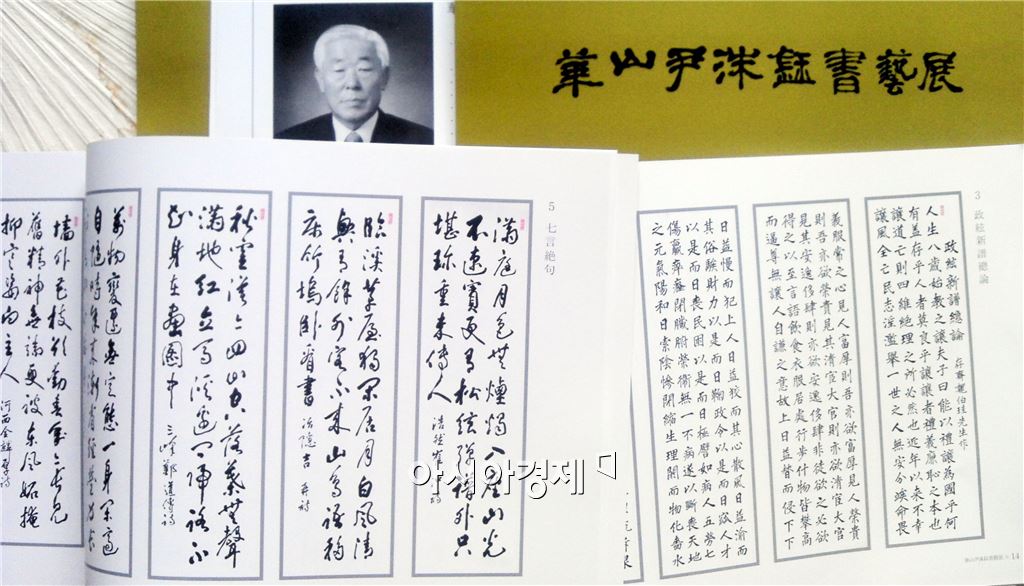 華山尹洙鈺書藝展
5 七言絶句
滿庭月色無煙燭入座山光
不速賓更有松絃彈譜外只
堪珍重未傳人
臨溪茅屋獨閑居月白風清
興有餘外客不來山鳥語移
床竹塢臥看書 冶隱吉再詩
秋雲漠漠四山空落葉無聲
滿地紅立馬溪邊問歸路不
知身在畵圖中 三峰鄭道傳詩
萬物變遷無定態一身閑適
自隨時年來漸省經營力長
3 政絃新譜總論
政絃新譜總論 存齋魏伯珪先生作
人生八歲始敎之讓夫子曰能以禮讓爲國乎何
有蓋存乎人者莫良乎讓讓者禮義廉恥之本也
讓道亡則四維絶理之所必然也近年以來不幸
讓風全亡民志淫濫擧一世之人無安分竢命畏
義服常之心見人富厚則吾亦欲富厚見人榮貴
則吾亦欲榮貴見其淸宦大官則亦欲淸宦大官
見其安逸侈肆則亦欲安逸侈肆非徒欲之必欲
得之以至言語飮食衣服居處行步什物皆桀高
而過尊無讓人自謙之意故上日益督而侵下下
日益慢而犯上人日益狡而其心散風日益渝而
其俗駭財力以是而日鞠政令以是而日窳人才
以是而日喪民困以是而日極譬如病人五勞七
傷羸瘁癃閉臟腑榮衛無一不病遂以斷喪天地
之元氣陽和日索陰慘閉縮生理閼而物化畓水
14
아시아경제